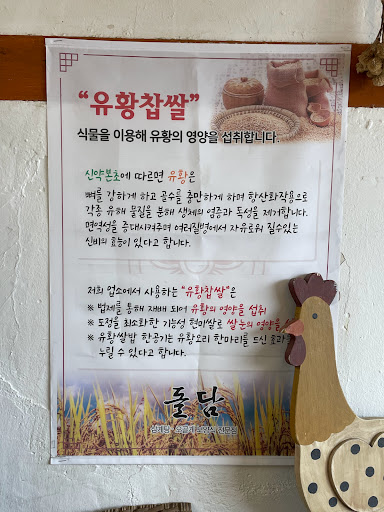 “유황찹쌀”
식물을 이용해 유황의 영양을 섭취합니다.
신약본초에 따르면 유황은
뼈를 강하게 하고 골수를 충만하게 하며 항산화작용으로
각종 유해 물질을 분해 생체의 염증과 독성을 제거합니다.
면역성을 증대시켜주며 여러질병에서 자유로워 질수있는
신비의 효능이 있다고 합니다.
저희 업소에서 사용하는 “유황찹쌀”은
※ 법제를 통해 재배 되어 유황의 영양을 섭취
※ 도정을 최소화한 기능성 현미쌀로 쌀눈의 영양을
※ 유황쌀밥 한공기는 유황오리 한마리를 드신 효과를
누릴 수 있다고 합니다.
돌담